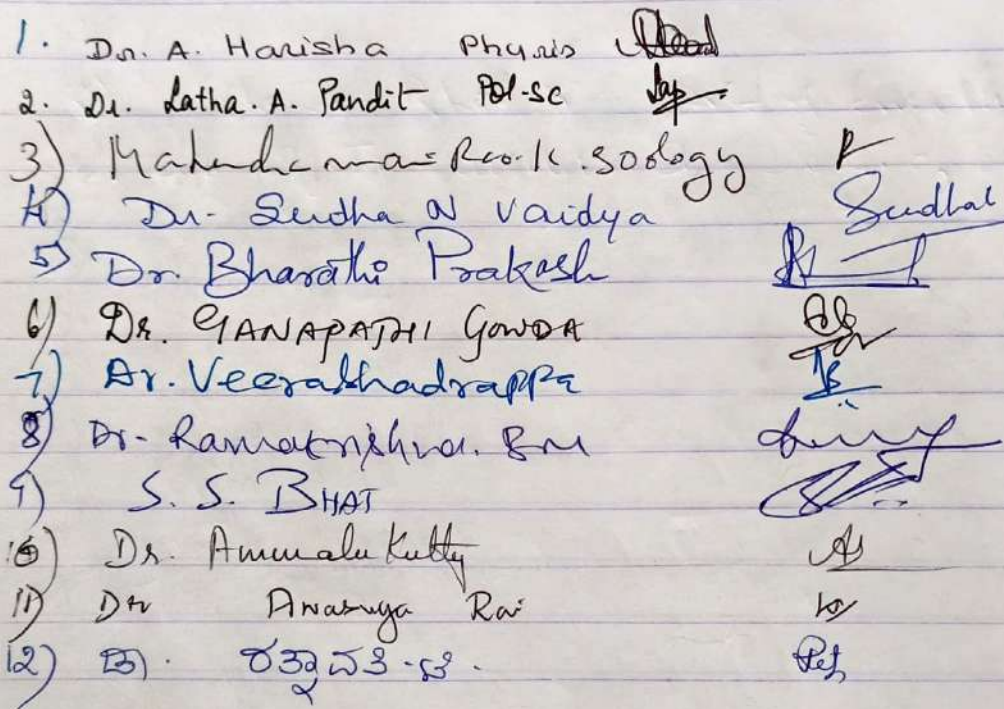 1. Dr. A. Harisha Physis
2. Dr. Latha. A. Pandit Pol-Sc
3) Rao. K. soology
4) Dr. Sudha N Vaidya Sudha
5) Dr. Bharathi Prakash
6) Dr. GANAPATHI GOWDA
7) Dr. Veerabhadrappa
8) Dr. Ramakrishna. BM
9) S. S. BHAT
10) Dr. Ammalu Kutty
11) Dr Anasuya Rai
12) ಡಾ. ರತ್ನಾವತಿ. ಟಿ.